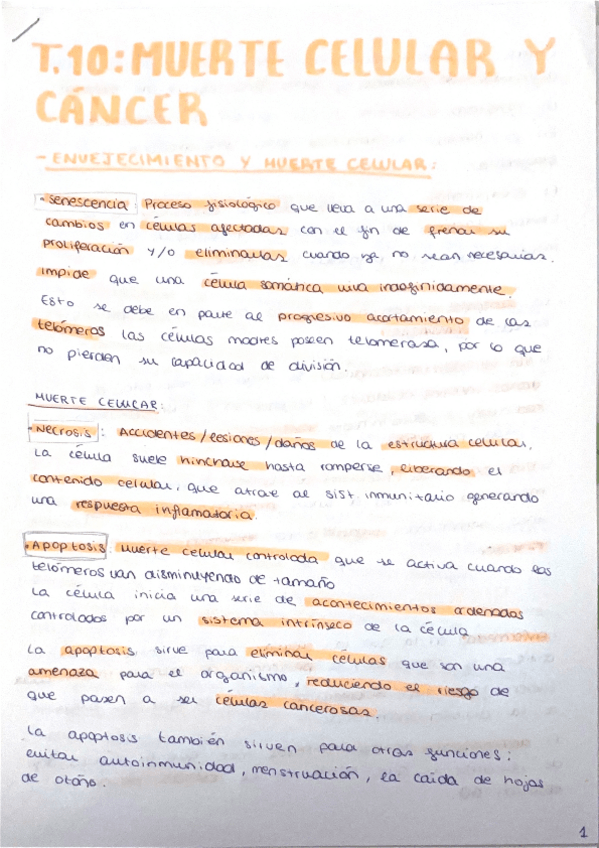 T.10: MUERTE CELULAR Y
CÁNCER
- ENVEJECIMIENTO Y MUERTE CELULAR:
· Senescencia: Proceso fisiológico que lleva a una serie de
cambios en células afectadas con el fin de frenar su
proliferación y/o eliminarlas cuando ya no sean necesarias.
Impide que una célula somática viva indefinidamente.
Esto se debe en parte al progresivo acortamiento de los
telómeros las células madres poseen telomerasa, por lo que
no pierden su capacidad de división.
MUERTE CELULAR:
· Necrosis: Accidentes/lesiones/daños de la estructura celular.
La célula suele hincharse hasta romperse, liberando el
contenido celular, que atrae al sist. inmunitario generando
una respuesta inflamatoria.
· Apoptosis: Muerte celular controlada que se activa cuando los
telómeros van disminuyendo de tamaño
La célula inicia una serie de acontecimientos ordenados
controlados por un sistema intrínseco de la célula
La apoptosis sirve para eliminar células que son una
amenaza para el organismo, reduciendo el riesgo de
que pasen a ser células cancerosas.
La apoptosis también sirven para otras funciones:
evitar autoinmunidad, menstruación, la caída de hojas
de otoño.
1